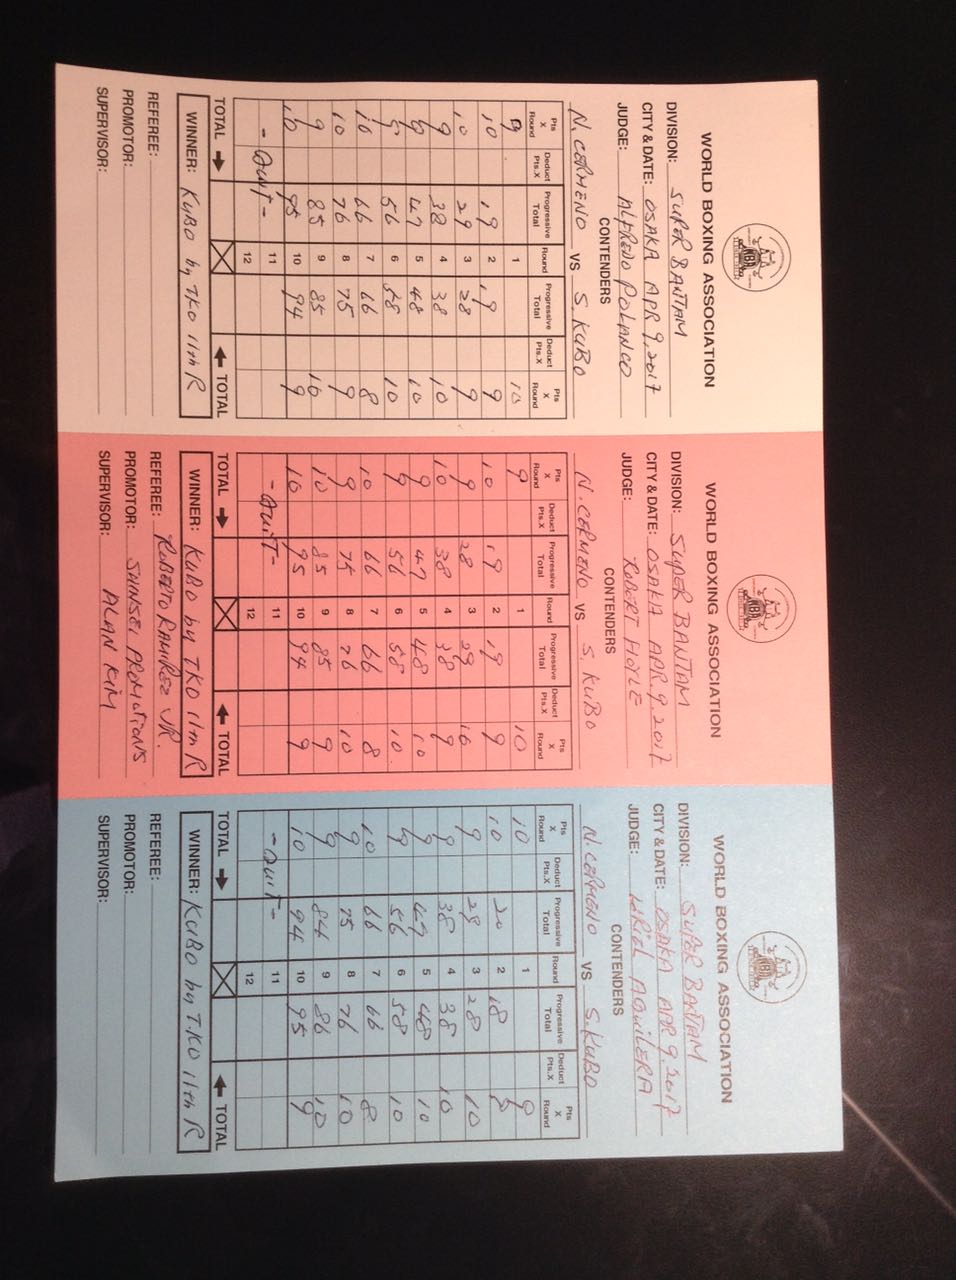 WORLD BOXING ASSOCIATION
DIVISION: SUPER BANTAM
CITY & DATE: OSAKA APR 9, 2017
JUDGE: ALFREDO POLANCO
CONTENDERS
N. CERMENO VS S. KUBO
Pts X Round Deduct Pts.X Progressive Total Round Progressive Total Deduct Pts.X Pts X Round
9 1 10
10 19 2 19 9
10 29 3 28 9
9 38 4 38 10
9 47 5 48 10
9 56 6 58 10
10 66 7 66 8
10 76 8 75 9
9 85 9 85 10
10 95 10 94 9
- QUIT - 11
12
TOTAL → ← TOTAL
WINNER: KUBO by TKO 11th R
REFEREE:
PROMOTOR:
SUPERVISOR:
WORLD BOXING ASSOCIATION
DIVISION: SUPER BANTAM
CITY & DATE: OSAKA APR. 9. 2017
JUDGE: ROBERT HOYLE
CONTENDERS
N. CERMENO VS S. KUBO
Pts X Round Deduct Pts.X Progressive Total Round Progressive Total Deduct Pts.X Pts X Round
9 1 10
10 19 2 19 9
9 28 3 29 10
10 38 4 38 9
9 47 5 48 10
9 56 6 58 10
10 66 7 66 8
9 75 8 76 10
10 85 9 85 9
10 95 10 94 9
- QUIT - 11
12
TOTAL → ← TOTAL
WINNER: KUBO by TKO 11th R
REFEREE: ROBERTO RAMIREZ JR.
PROMOTOR: SHINSEI PROMOTIONS
SUPERVISOR: ALAN KIM
WORLD BOXING ASSOCIATION
DIVISION: SUPER BANTAM
CITY & DATE: OSAKA APR 9. 2017
JUDGE: URIEL AGUILERA
CONTENDERS
N. CERMENO VS S. KUBO
Pts X Round Deduct Pts.X Progressive Total Round Progressive Total Deduct Pts.X Pts X Round
10 1 9
10 20 2 18 9
9 29 3 28 10
9 38 4 38 10
9 47 5 48 10
9 56 6 58 10
10 66 7 66 8
9 75 8 76 10
9 84 9 86 10
10 94 10 95 9
- QUIT - 11
12
TOTAL → ← TOTAL
WINNER: KUBO by T.KO 11th R
REFEREE:
PROMOTOR:
SUPERVISOR: